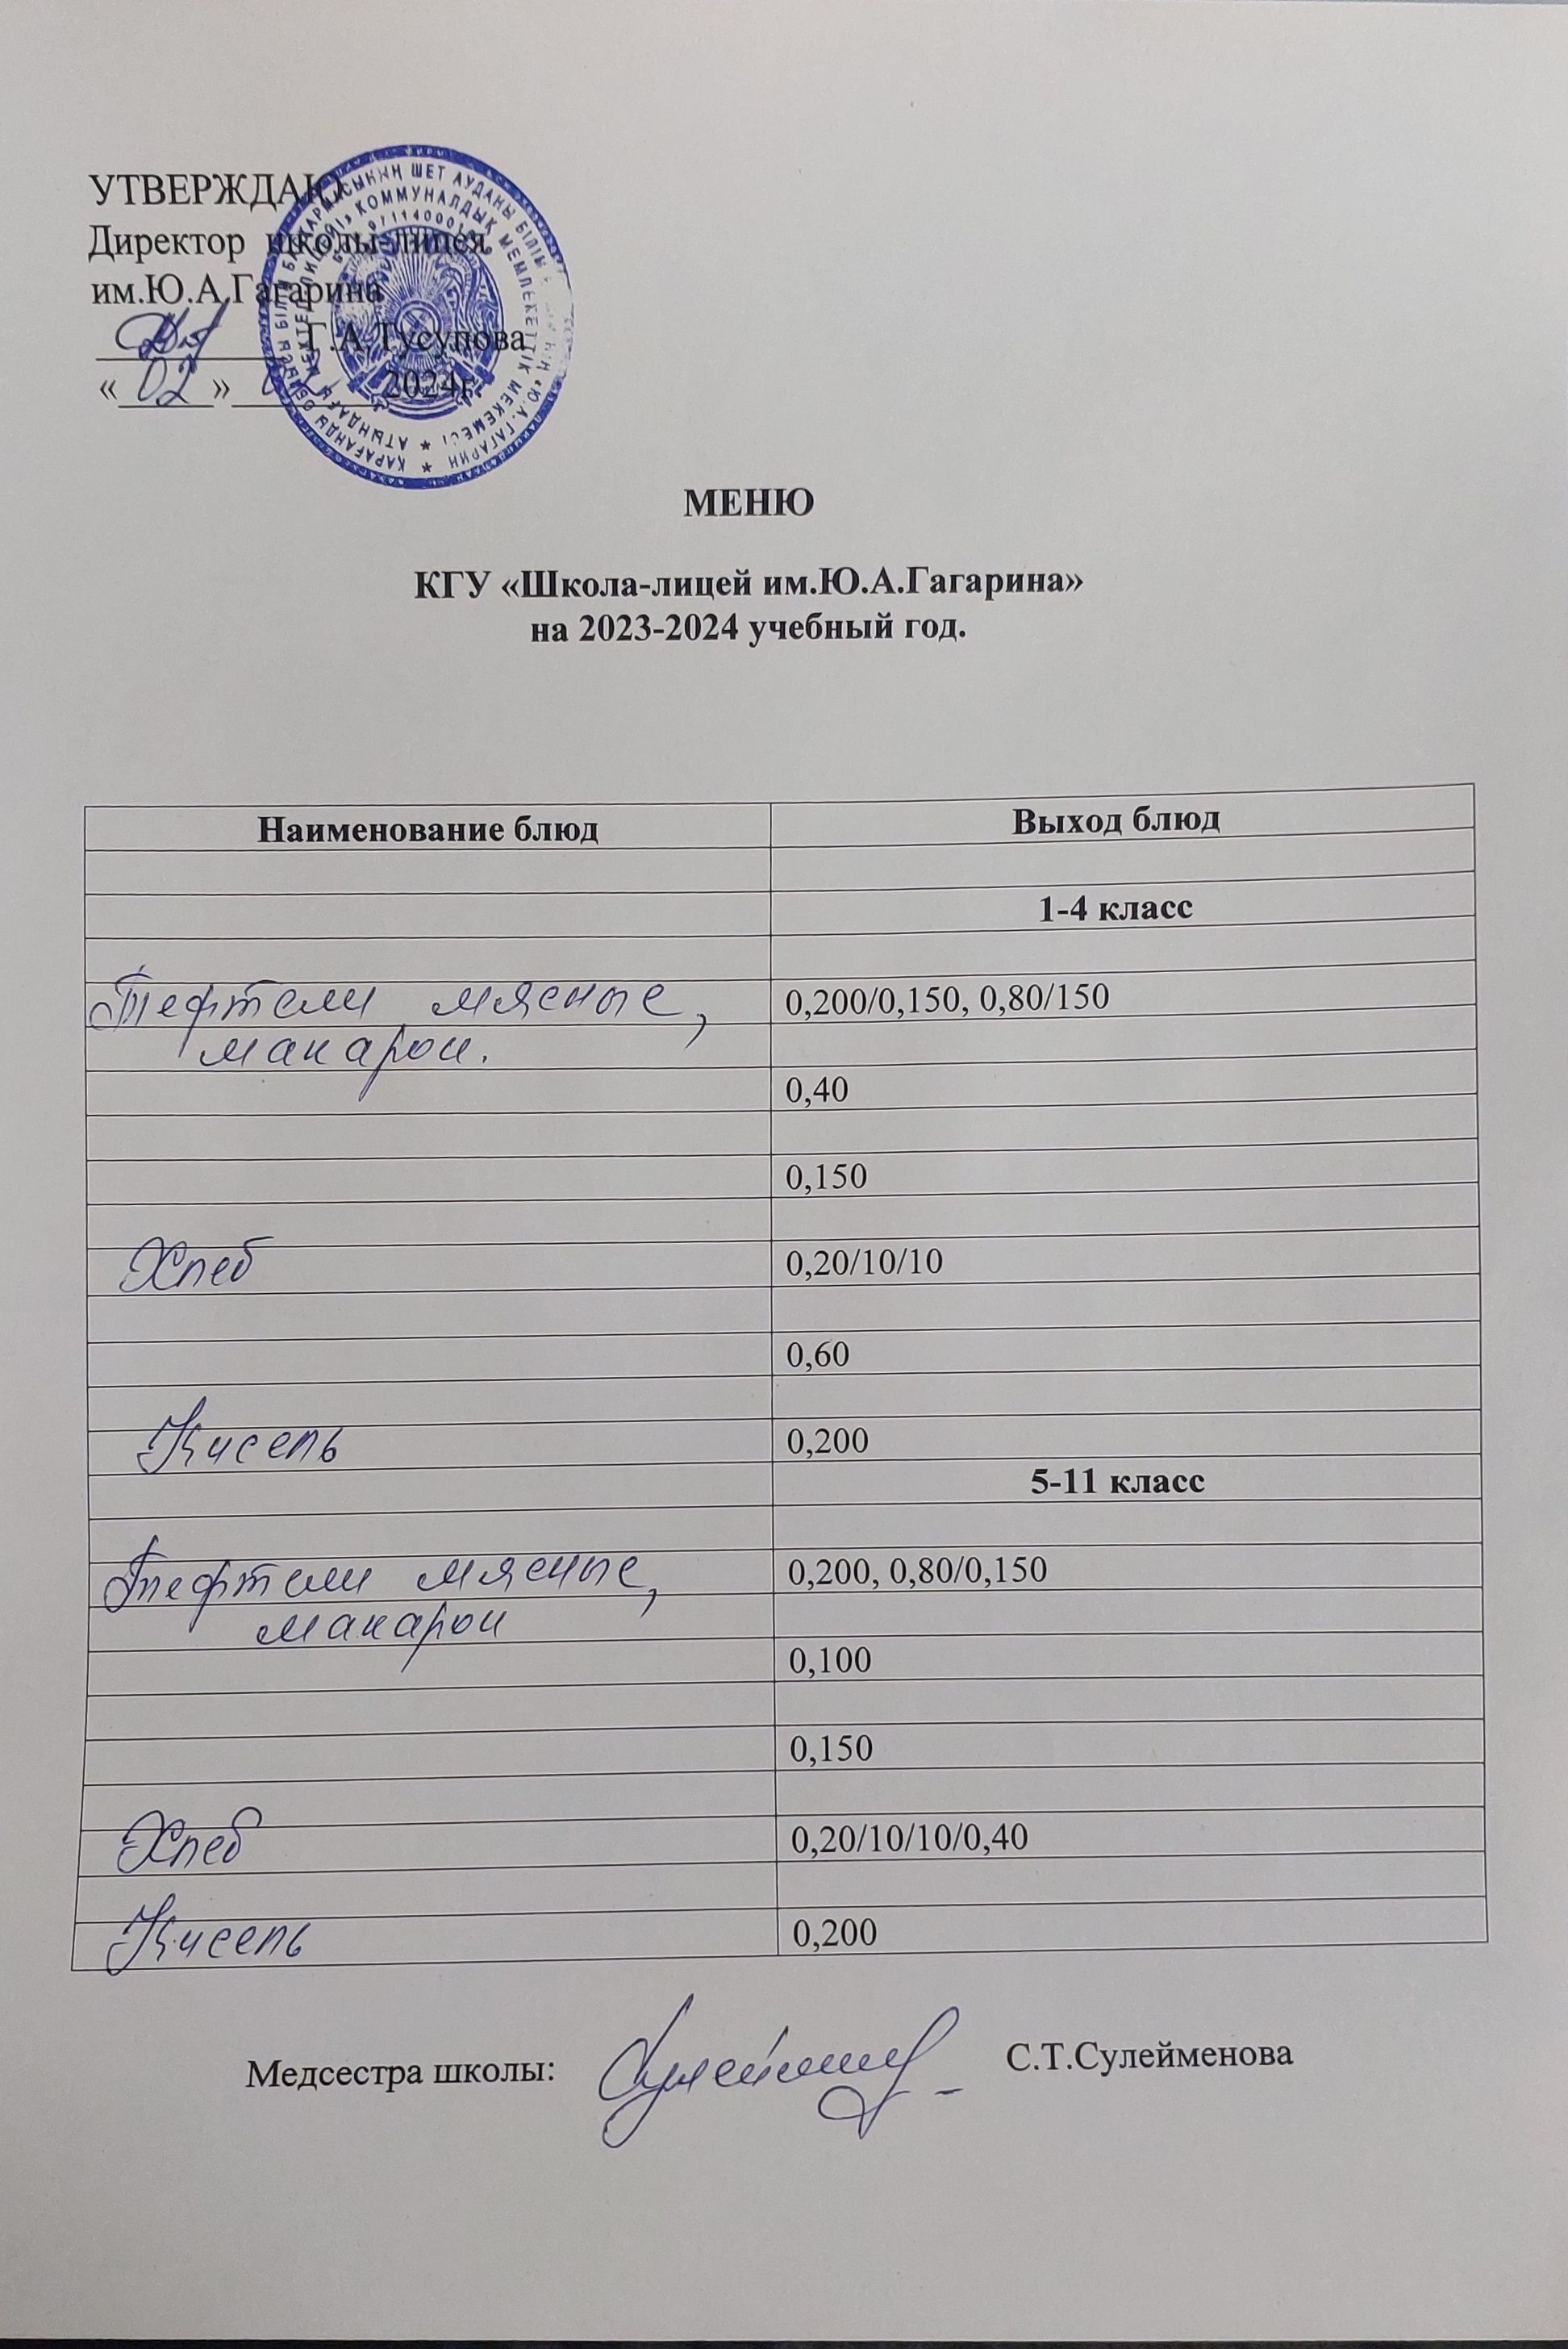 УТВЕРЖДАЮ
Директор школы-лицея
им.Ю.А.Гагарина
Г.А.Тусупова
«02» 2024г.
МЕНЮ
КГУ «Школа-лицей им.Ю.А.Гагарина»
на 2023-2024 учебный год.
Наименование блюд Выход блюд
1-4 класс
Тефтели мясные, 0,200/0,150, 0,80/150
макарон.
0,40
0,150
Хлеб 0,20/10/10
0,60
Кисель 0,200
5-11 класс
Тефтели мясные, 0,200, 0,80/0,150
макарон
0,100
0,150
Хлеб 0,20/10/10/0,40
Кисель 0,200
Медсестра школы: С.Т.Сулейменова